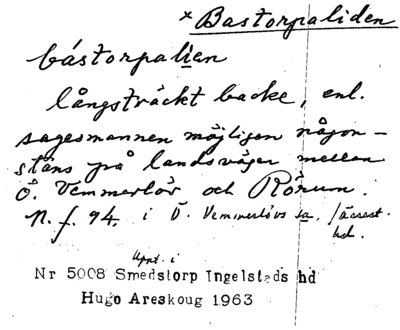 × Bastorpaliden
båstorpalien
långsträckt backe, enl.
sagesmannen möjligen någon-
stäns på landsvägen mellan
Ö. Vemmerlöv och Rörum.
N. f. 94. i Ö. Vemmerlövs sn,
hd.
Uppt. i
Nr 5008 Smedstorp Ingelstads hd
Hugo Areskoug 1963